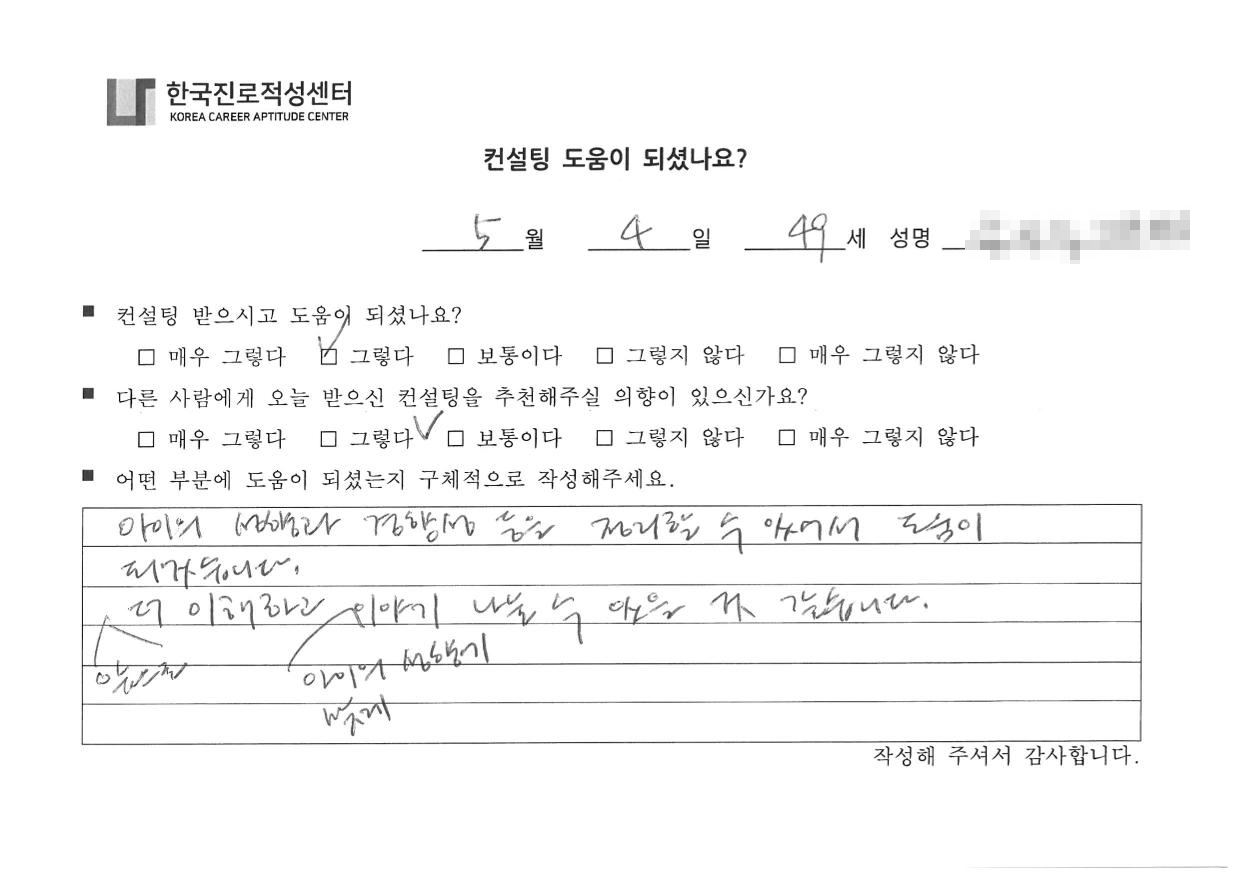 한국진로적성센터
KOREA CAREER APTITUDE CENTER
컨설팅 도움이 되셨나요?
5월 4일 49세 성명
■ 컨설팅 받으시고 도움이 되셨나요?
□ 매우 그렇다 ☑ 그렇다 □ 보통이다 □ 그렇지 않다 □ 매우 그렇지 않다
■ 다른 사람에게 오늘 받으신 컨설팅을 추천해주실 의향이 있으신가요?
□ 매우 그렇다 □ 그렇다 ✓ □ 보통이다 □ 그렇지 않다 □ 매우 그렇지 않다
■ 어떤 부분에 도움이 되셨는지 구체적으로 작성해주세요.
아이의 성향과 경향성 등을 정리할 수 있어서 도움이
되었습니다.
더 이해하고 이야기 나눌 수 있을 것 같습니다.
앞으로
아이의 성향에
맞게
작성해 주셔서 감사합니다.